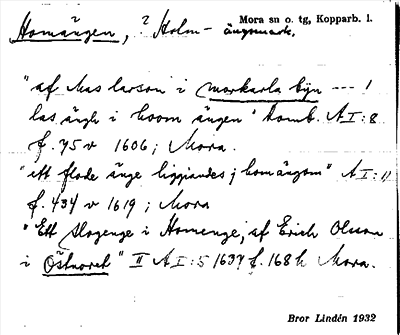 Homängen, ? Holm- ängsmark. Mora sn o. tg, Kopparb. l.
"af Mas larson i morkarla byn --- 1
las ängh i hoom ängen" Domb. A I:8
f. 75 v 1606; Mora.
"ett flode änge liggiandes j homängom" A I:11
f. 434 v 1619; Mora
"Ett slogenge i Homenge, af Erich Olsson
i Östnoret" II A I:5 1637 f. 168 h Mora.
Bror Lindén 1932